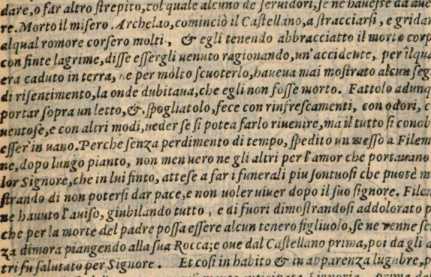 dare, o far altro strepito, col quale alcuno de seruidori, se ne hauesse da
re. Morto il misero Archelao, cominciò il Castellano, a stracciarsi, e gridar
al qual romore corsero molti, & egli tenendo abbracciatto il morto corp
con finte lagrime, disse essergli uenuto ragionando, un'accidente, per il qua
era caduto in terra, ne per molto scuoterlo, haueua mai mostrato alcun seg
di risentimento, la onde dubitaua, che egli non fosse morto. Fattolo adunqu
portar sopra un letto, & spogliatolo, fece con rinfrescamenti, con odori, c
uentose, e con altri modi, ueder se si potea farlo riuenire, ma il tutto si conob
esser in uano. Perche senza perdimento di tempo, spedito un messo a Filem
ne, dopo lungo pianto, non men uero ne gli altri per l'amor che portauano
lor Signore, che in lui finto, attese a far i funerali piu sontuosi che puotè m
strando di non potersi dar pace, e non uoler uiuer dopo il suo signore. Filem
ne hauuto l'auiso, giubilando tutto, e di fuori dimostrandosi addolorato p
che per la morte del padre possa essere alcun tenero figliuolo, se ne uenne se
za dimora piangendo alla sua Rocca; e oue dal Castellano prima, poi da gli a
tri fu salutato per Signore. Et cosi in habito & in apparenza lugubre, p